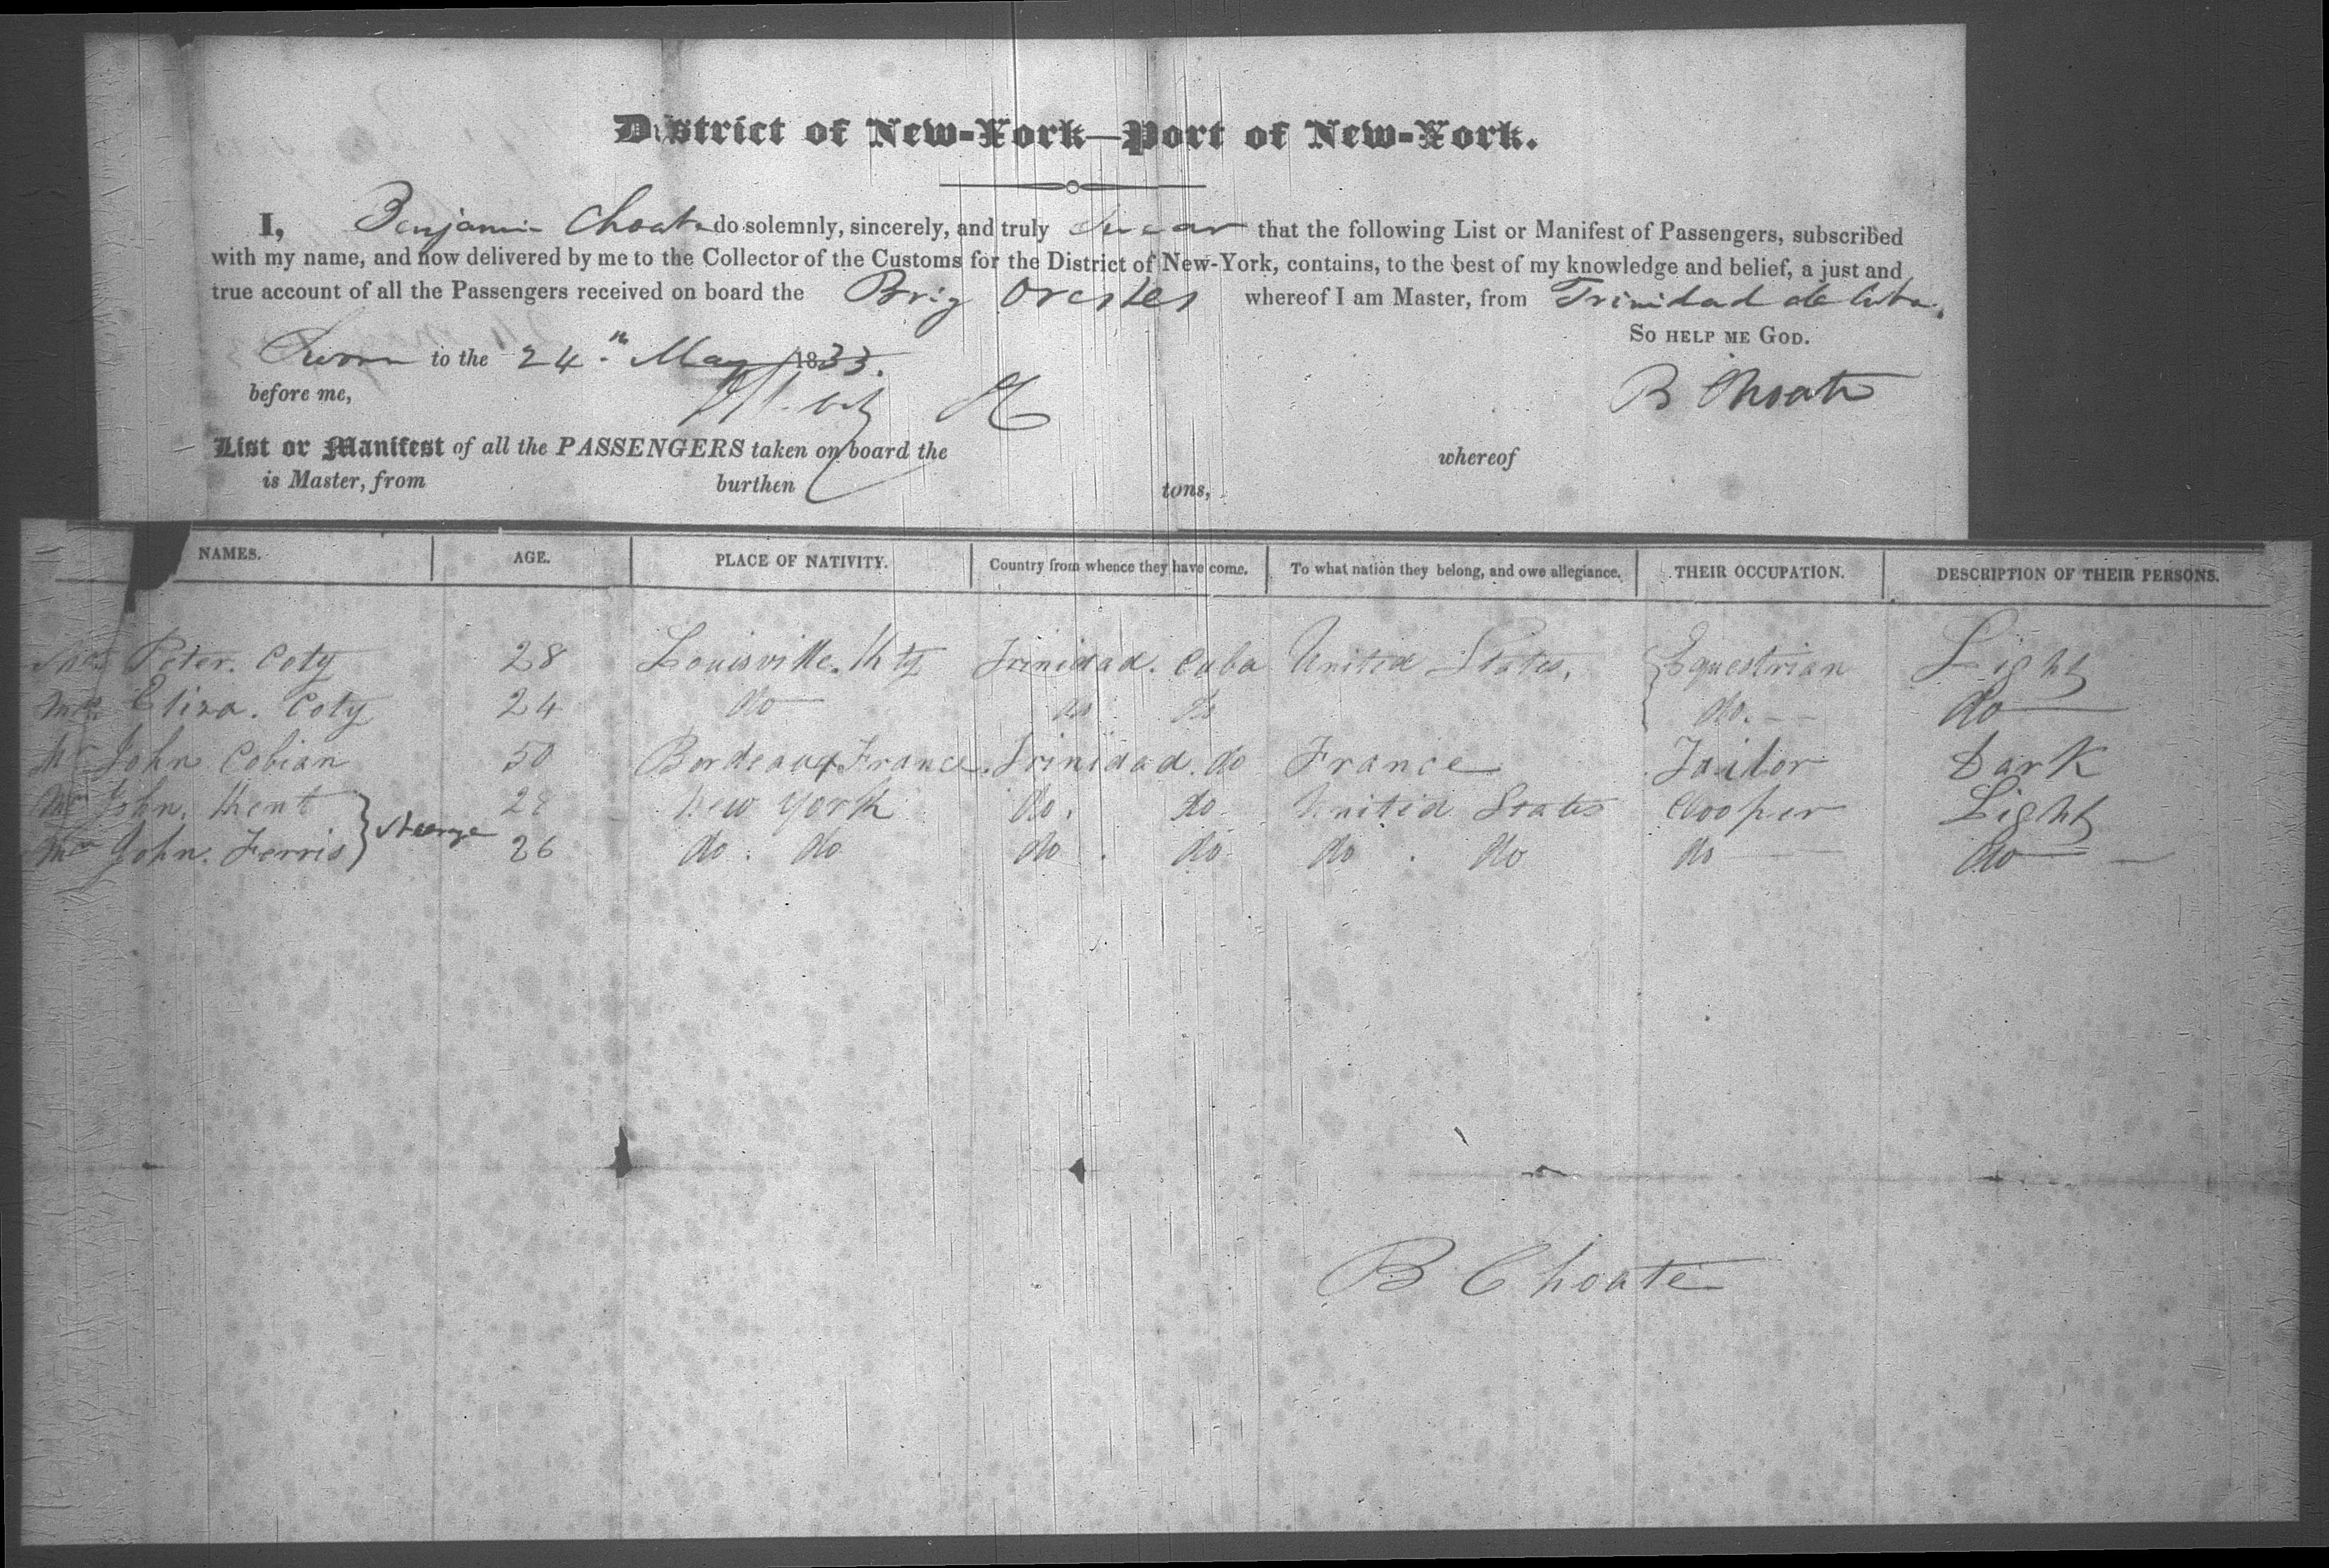 District of New-York—Port of New-York.
I, Benjamin Choate do solemnly, sincerely, and truly Swear that the following List or Manifest of Passengers, subscribed
with my name, and now delivered by me to the Collector of the Customs for the District of New-York, contains, to the best of my knowledge and belief, a just and
true account of all the Passengers received on board the Brig Orestes whereof I am Master, from Trinidad de Cuba.
So help me God.
Sworn to the 24th May 1833.
before me,
B Choate
List or Manifest of all the PASSENGERS taken on board the whereof
is Master, from burthen tons,
NAMES. AGE. PLACE OF NATIVITY. Country from whence they have come. To what nation they belong, and owe allegiance. THEIR OCCUPATION. DESCRIPTION OF THEIR PERSONS.
Mr Peter. Coty 28 Louisville. Kty Trinidad. Cuba United States, Equestrian Light
Mrs Eliza. Coty 24 do do do do. do
Mr John Cobian 50 Bordeaux France. Trinidad. do France Tailor Dark
Mr John. Kent 28 New York do. do. United States Cooper Light
steerage
Mr John. Ferris 26 do. do do. do do. do do do
B Choate